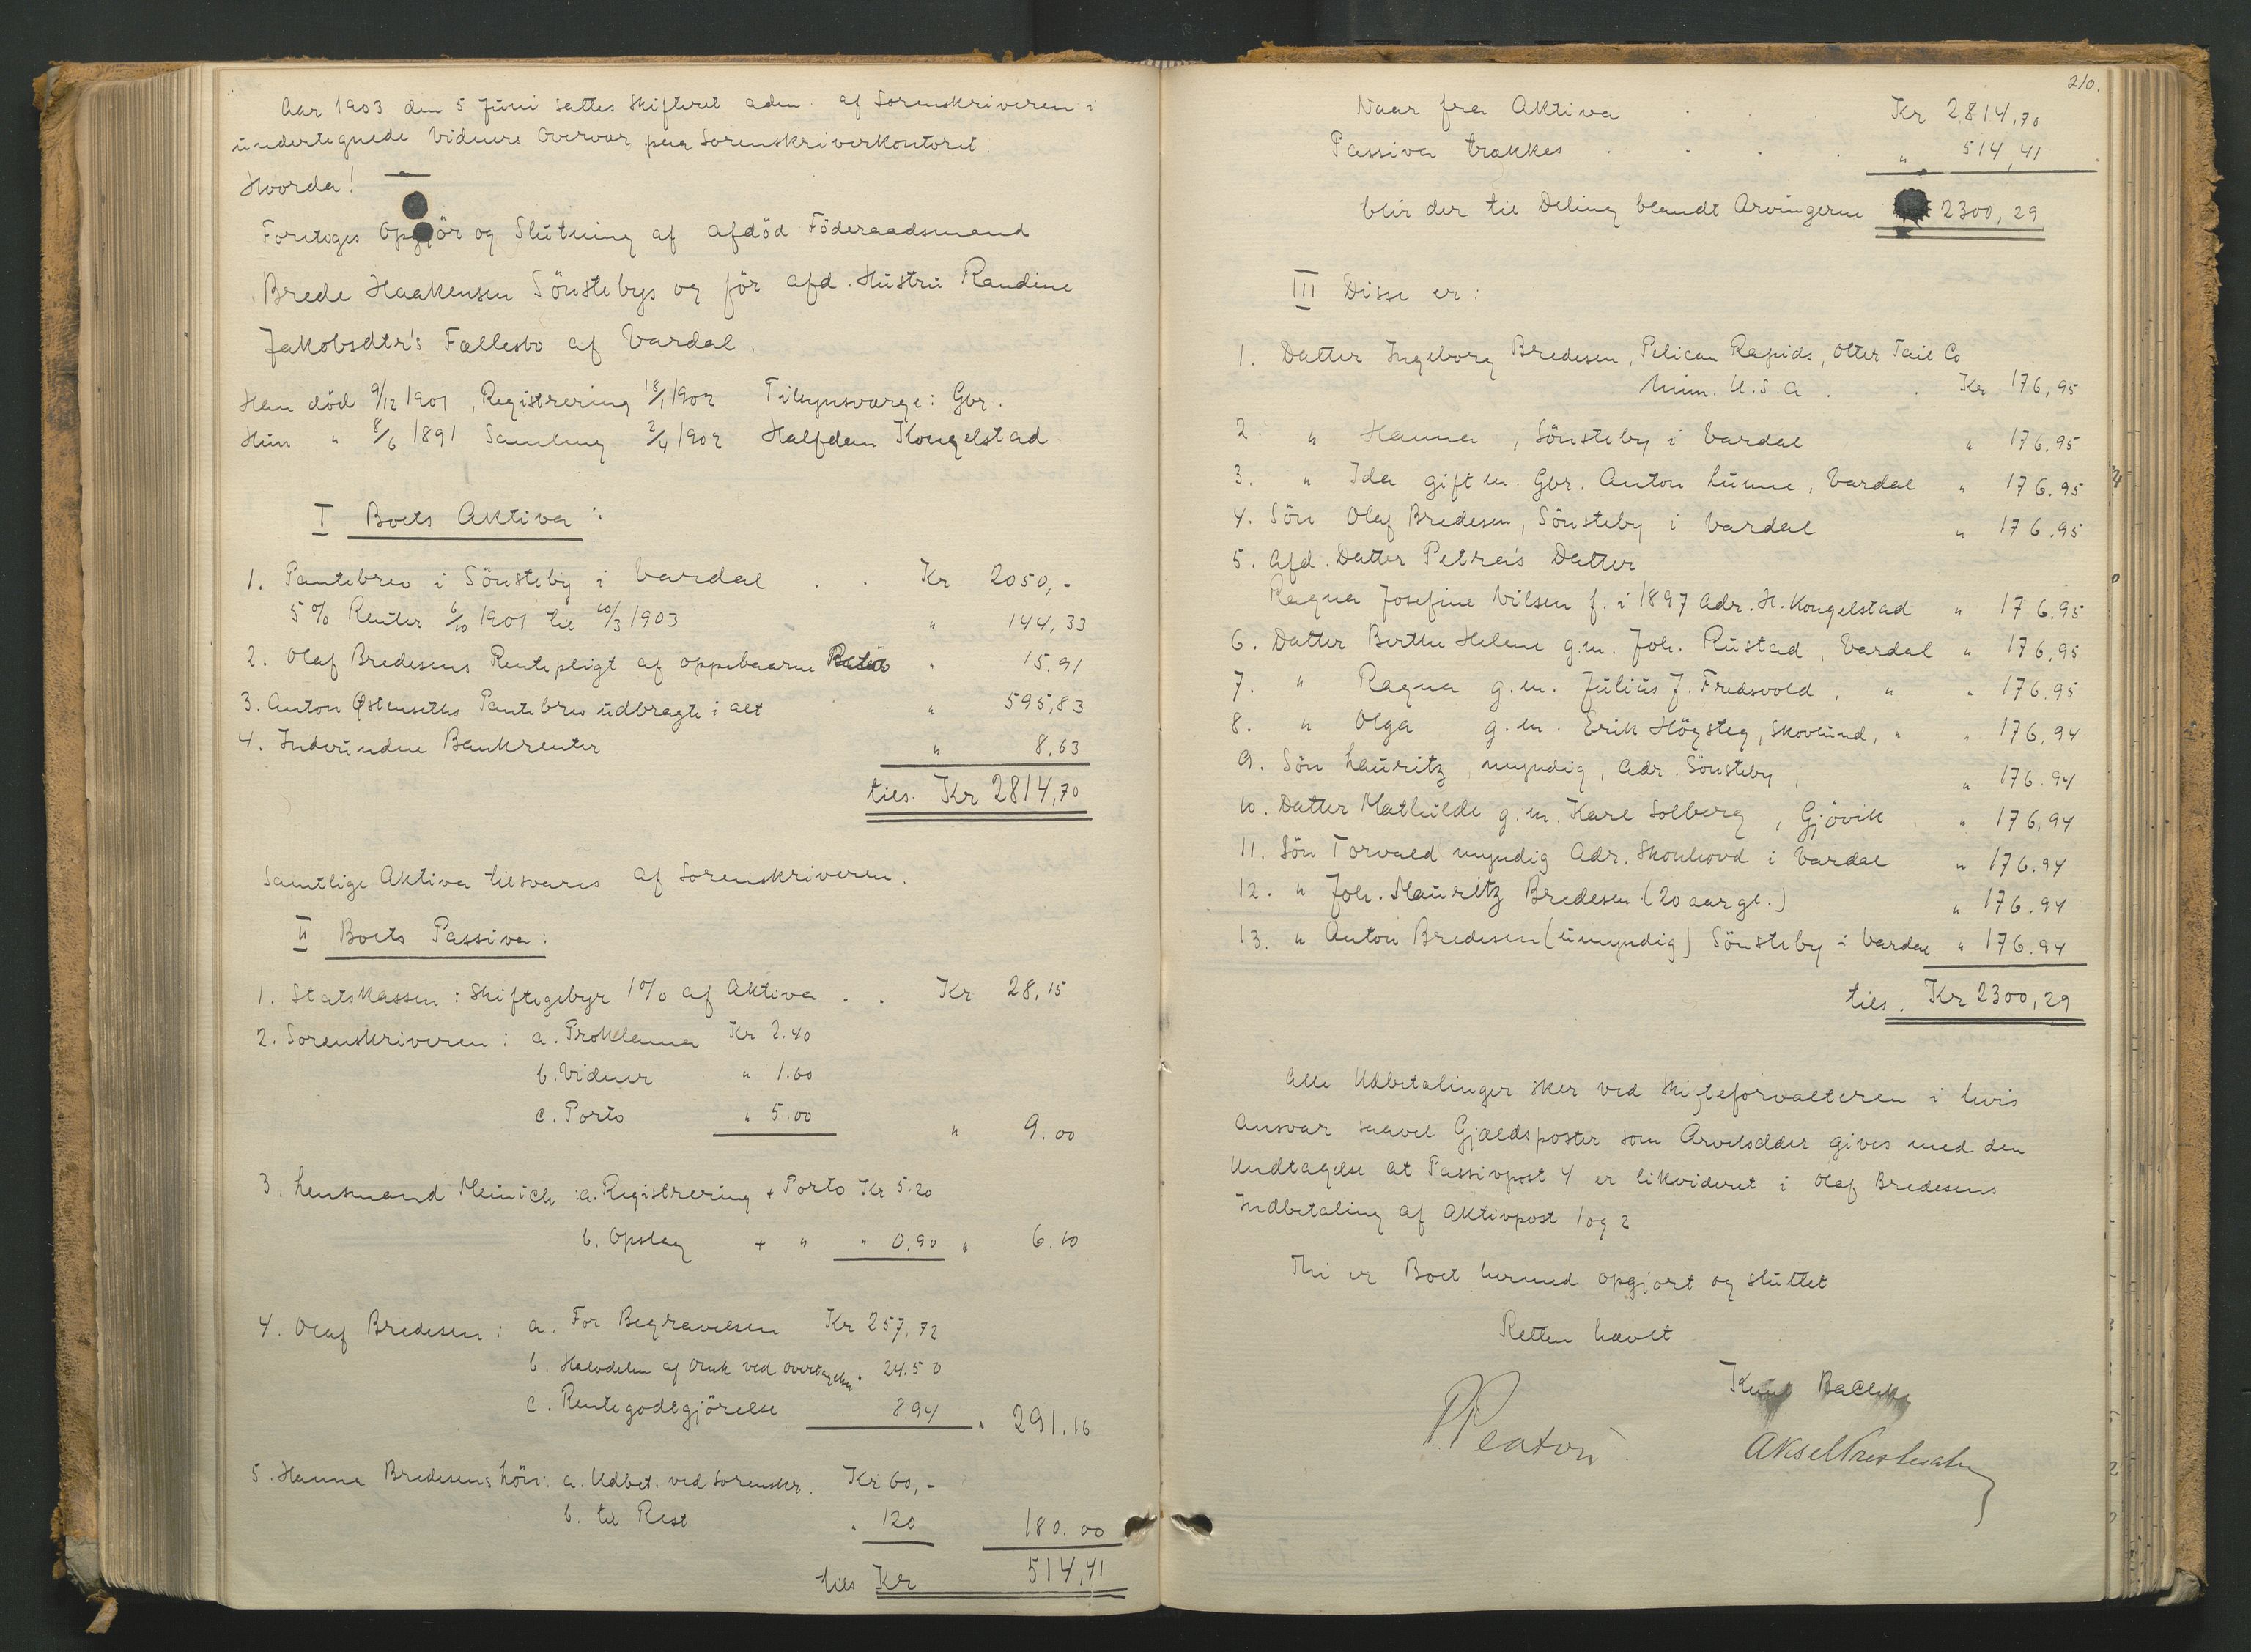 Aar 1903 den 5 Juni sattes Skifteret aden af Sorenskriveren i
undertegnede Vidners Overvær paa Sorenskriverkontoret.
Hvorda!
Foretoges Opgjör og Slutning af afdöd Föderaadsmand
Brede Haakensen Sönstebys og för afd. Hustru Randine
Jakobsdtr's Fællesbo af Vardal.
Han död 9/12 1901, Registrering 18/1 1902 Tilsynsværge: Gbr.
Hun " 8/6 1891 Samling 2/4 1902 Halfdan Kongelstad
I Boets Aktiva:
1. Pantebrev i Sönsteby i Vardal . . Kr 2050,-
5% Renter 6/10 1901 til 10/3 1903 " 144,33
2. Olaf Bredesens Rentepligt af oppebaarne " 15.91
3. Anton Østenseths Pantebrev udbragte i alt " 595,83
4. Indvundne Bankrenter " 8.63
tils. Kr 2814,70
Samtlige Aktiva tilsvares af Sorenskriveren.
II Boets Passiva:
1. Statskassen: Skiftegebyr 1% af Aktiva . . Kr 28,15
2. Sorenskriveren: a. Proklama Kr 2.40
b. Vidner " 1.60
c. Porto " 5.00 " 9.00
3. Lensmand Meinich: a. Registrering + Porto Kr 5.20
b. Opslag + " " 0.90 " 6.10
4. Olaf Bredesen: a. For Begravelsen Kr 257,72
b. Halvdelen af Omk ved Overtagelsen " 24.50
c. Rentegodtgjörelse 8.94 " 291.16
5. Hanna Bredesens Lön: a. Udbet. ved Sorenskr. Kr 60,-
b. til Rest " 120 180.00
tils Kr 514,41
210.
Naar fra Aktiva . . . Kr 2814,70
Passiva trækkes . . . . " 514,41
blir der til Deling blandt Arvingerne 2300,29
III Disse er:
1. Datter Ingeborg Bredesen, Pelican Rapids, Otter Tail Co
Minn. U.S.A . . Kr 176,95
2. " Hanna, Sönsteby i Vardal " 176.95
3. " Ida gift m. Gbr. Anton Lunne, Vardal " 176.95
4. Sön Olaf Bredesen, Sönsteby i Vardal " 176.95
5. Afd. Datter Petra's Datter
Ragna Josefine Nilsen f. i 1897 Adr. H. Kongelstad " 176.95
6. Datter Berthe Helene g.m. Joh. Rustad, Vardal " 176,95
7. " Ragna g.m. Julius J. Fredsvold, " " 176.95
8. " Olga g.m. Erik Högsteg, Skovlund, " " 176,94
9. Sön Lauritz, myndig, Adr. Sönsteby, " 176.94
10. Datter Mathilde g.m. Karl Solberg, Gjövik . " 176,94
11. Sön Torvald myndig Adr. Skonhovd i Vardal " 176.94
12. " Joh. Mauritz Bredesen (20 aar gl.) " 176.94
13. " Anton Bredesen (umyndig) Sönsteby i Vardal " 176.94
tils. Kr 2300,29
Alle Udbetalinger sker ved Skifteforvalteren i hvis
Ansvar saavel Gjældsposter som Arvelodder gives med den
Undtagelse at Passivpost 4 er likvideret i Olaf Bredesens
Indbetaling af Aktivpost 1 og 2
Thi er Boet hermed opgjort og sluttet
Retten hævet
Knut
Aksel